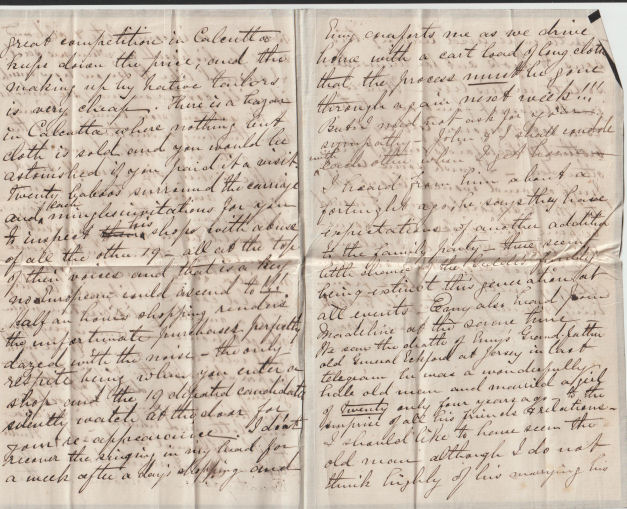 great competition in Calcutta
keeps down the price, and the
making up by native tailors
is very cheap. There is a bazaar
in Calcutta where nothing but
cloth is sold and you would be
astonished if you paid it a visit
Twenty baboos surround the carriage
and each mingles invitations for you
to inspect his shops with abuse
of all the other 19 — all at the top
of their voices and that is a key
no European could ascend to
Half an hours shopping renders
the unfortunate purchaser perfectly
dazed with the noise — the only
respite being when you enter a
shop and the 19 defeated candidates
silently watch at the door for
your re-appearance I don't
recover the ringing in my head for
a week after a day's shopping and
Emy comforts me as we drive
home with a cart load of long cloth
that the process must be gone
through again next week!!!
But I must not ask for
sympathy — John & I shall condole
with each other when I get home
I heard from him about a
fortnight ago he says they have
expectations of another addition
to the family party — there seems
little chance of the family
being extinct this generation at
all events — Emy also heard from
Madeline at the same time
We saw the death of Emys Grand father
old General at Jersey in last
telegram he was a wonderfully
hale old man and married a girl
of Twenty only four years ago to the
surprise of all his friends & relations —
I should like to have seen the
old man although I do not
think highly of his marrying his